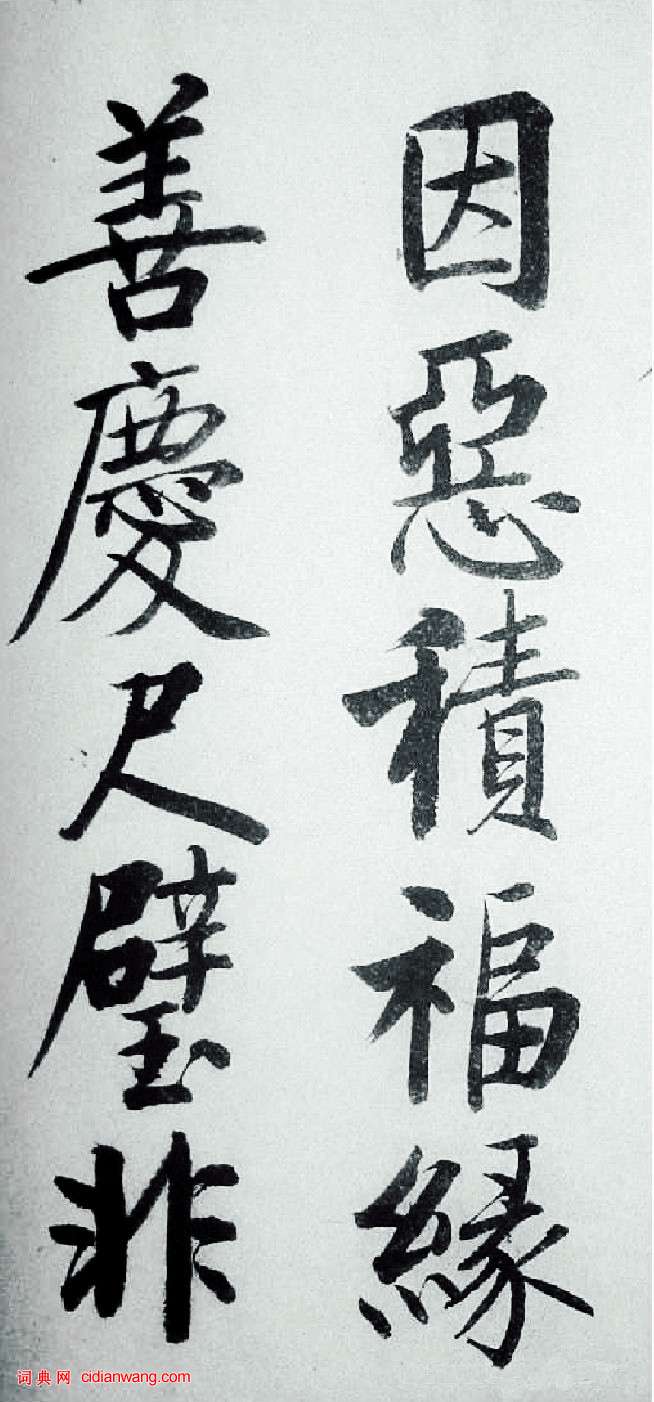 因惡積福緣
善慶尺璧非
词典网 cidianwang.com